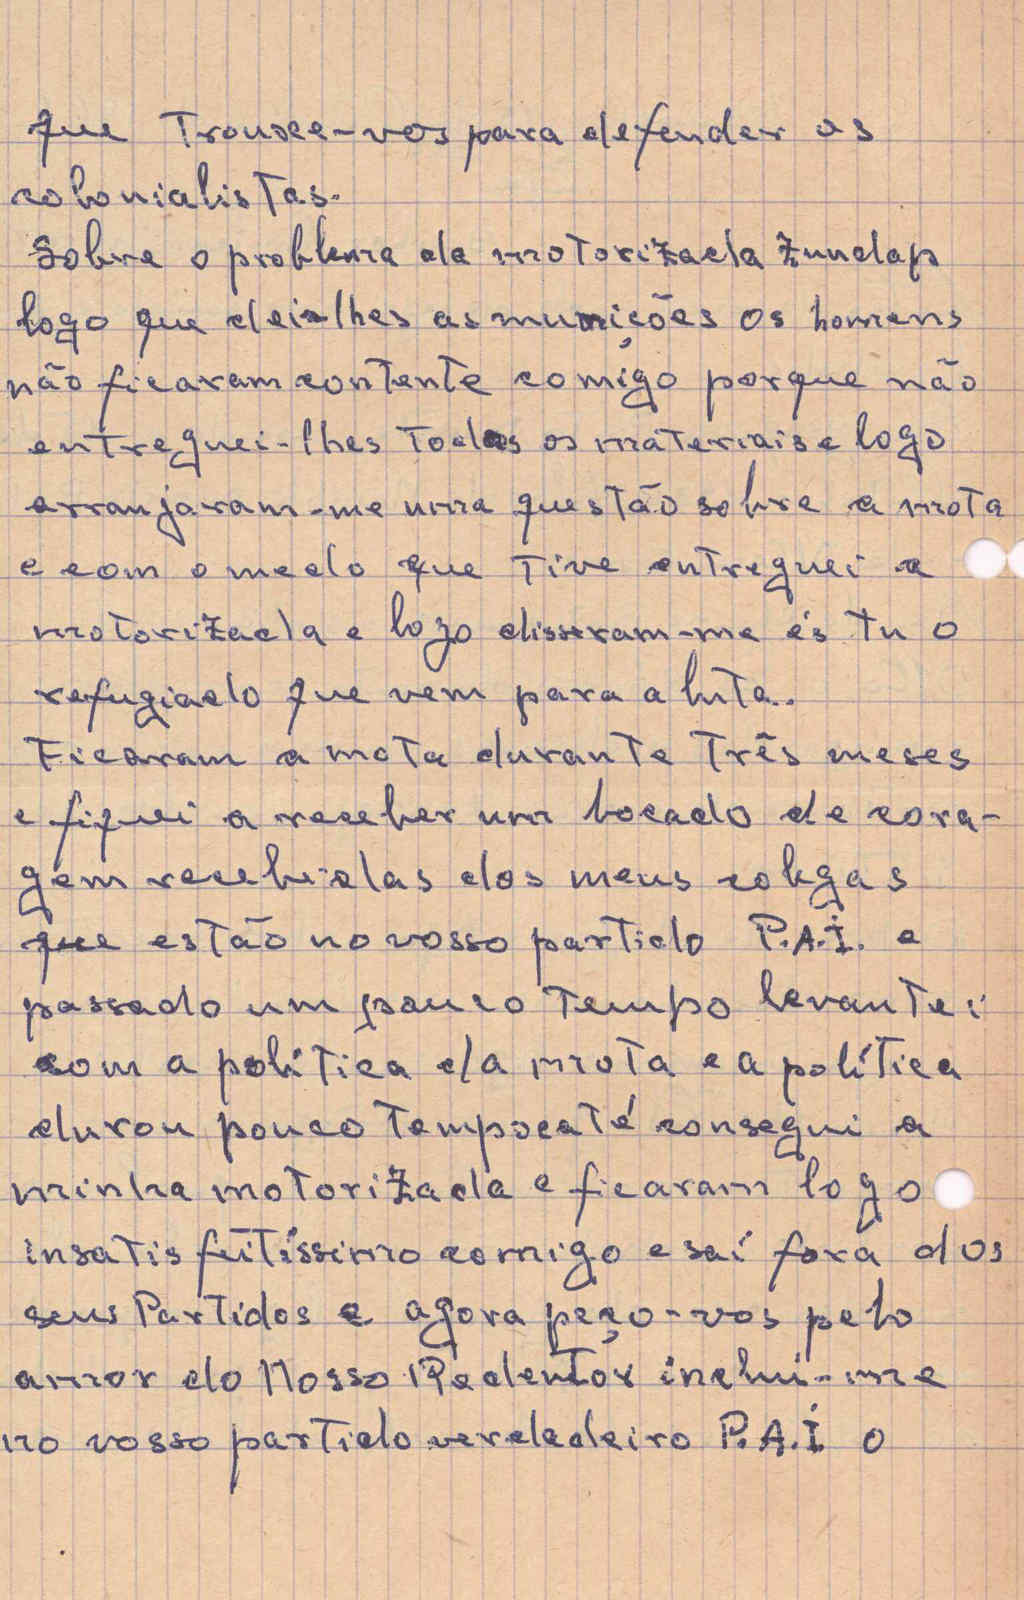 que Trouxe-vos para defender os
colonialistas.
Sobre o problema da motorizada Zundap
logo que dei-lhes as munições os homens
não ficaram contente comigo porque não
entreguei-lhes Todos os materiais e logo
arranjaram-me uma questão sobre a mota
e com o medo que Tive entreguei a
motorizada e logo disseram-me és tu o
refugiado que vem para a luta..
Ficaram a mota durante Três meses
e fiquei a receber um bocado de cora-
gem recebi-das dos meus colegas
que estão no vosso partido P.A.I. e
passado um pouco Tempo levantei
com a política da mota e a política
durou pouco Tempo e até consegui a
minha motorizada e ficaram logo
insatisfeitíssimo comigo e saí fora dos
seus Partidos e agora peço-vos pelo
amor do Nosso Redentor inclui-me
no vosso partido verdadeiro P.A.I o